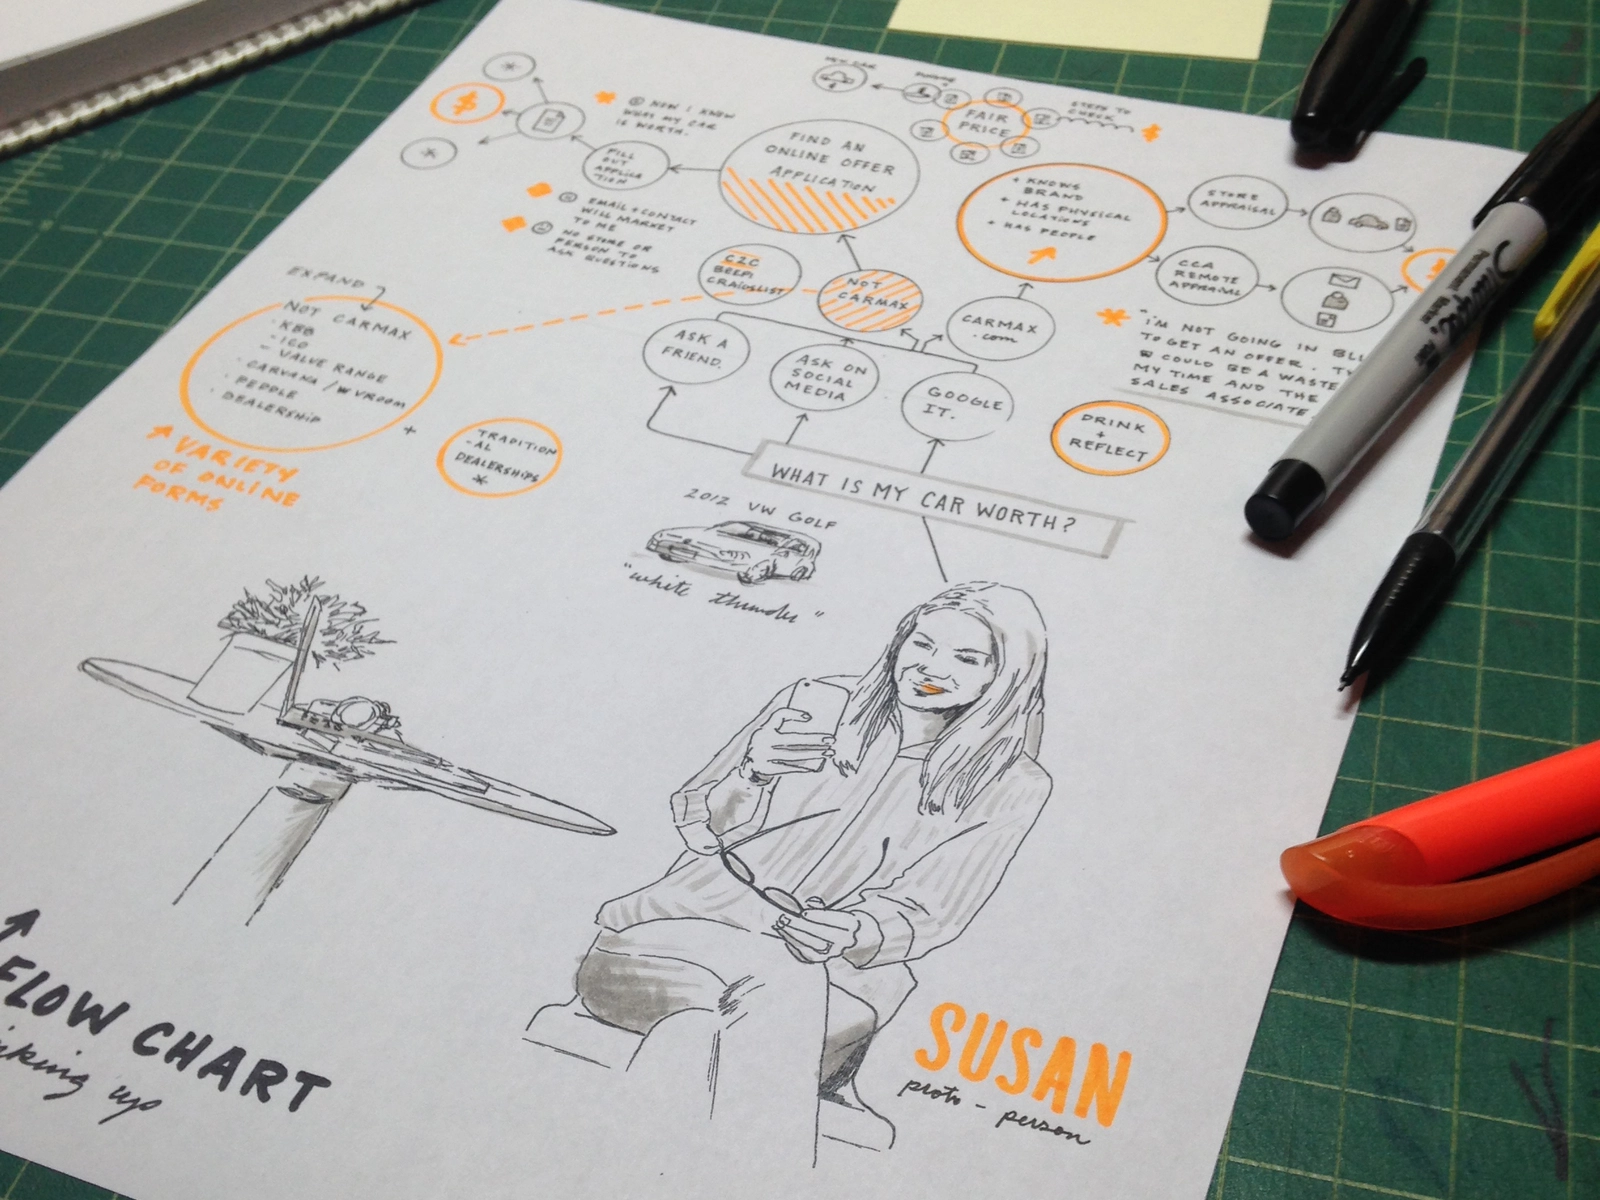 MY CAR
FAIR
PRICE
STEPS TO
CHECK
$
$
NOW I KNOW
WHAT MY CAR
IS WORTH.
FILL
OUT
APPLICA
TION
FIND AN
ONLINE OFFER
APPLICATION
+ KNOWS
BRAND
+ HAS PHYSICAL
LOCATIONS
+ HAS PEOPLE
STORE
APPRAISAL
CCA
REMOTE
APPRAISAL
EMAIL + CONTACT
WILL MARKET
TO ME
NO STORE OR
PERSON TO
ASK QUESTIONS
C2C
CRAIGSLIST
NOT
CARMAX
CARMAX
.com
"I'M NOT GOING IN
TO GET AN OFFER.
COULD BE A WASTE
MY TIME AND THE
SALES ASSOCIATE.
EXPAND
NOT CARMAX
- KBB
- ICO
- VALUE RANGE
- CARVANA / W VROOM
- PEDDLE
- DEALERSHIP
VARIETY
OF ONLINE
FORMS
+
TRADITION
-AL
DEALERSHIPS
*
ASK A
FRIEND.
ASK ON
SOCIAL
MEDIA
GOOGLE
IT.
DRINK
+
REFLECT
WHAT IS MY CAR WORTH?
2012 VW GOLF
"white thunder"
FLOW CHART
up
SUSAN
proto - person
Sharpie.